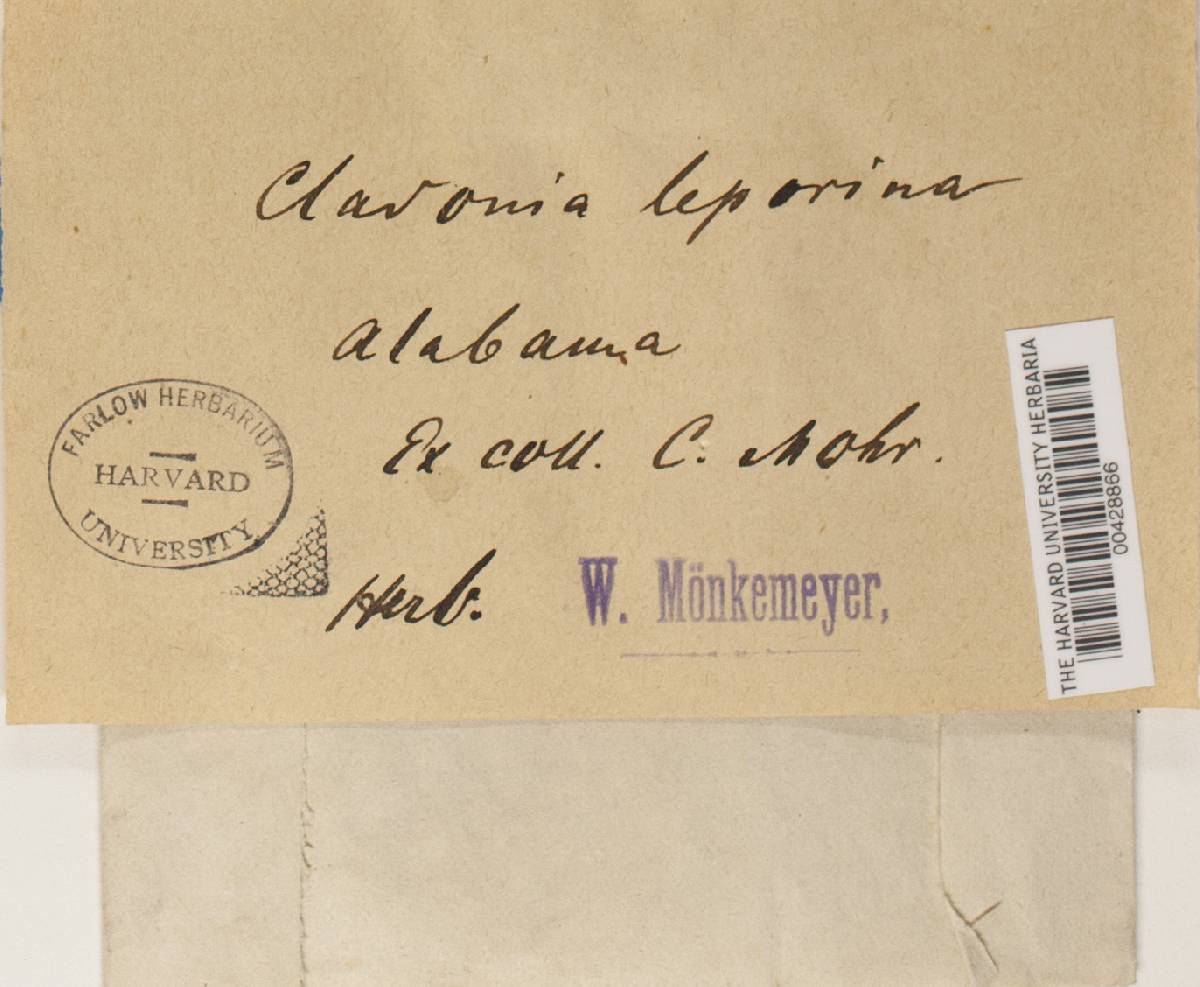 Cladonia leporina
Alabama
Ex coll. C. Mohr.
Herb. W. Mönkemeyer,
FARLOW HERBARIUM
HARVARD
UNIVERSITY
THE HARVARD UNIVERSITY HERBARIA
00428866